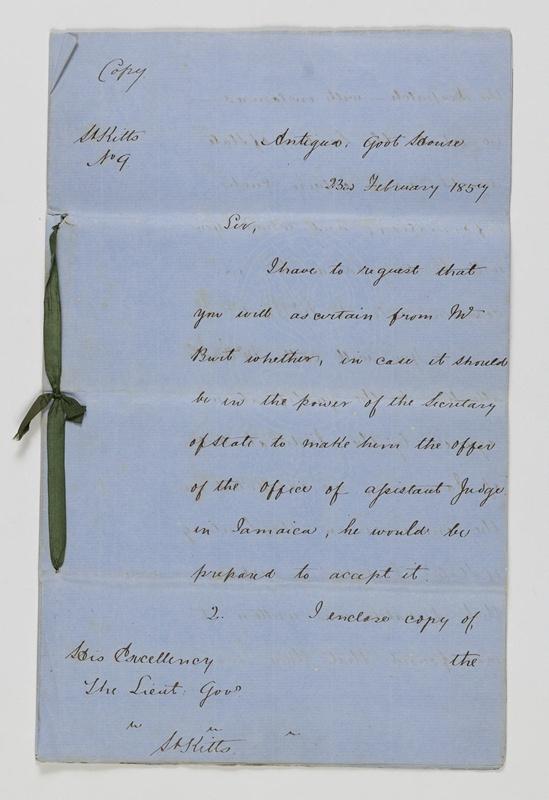 Copy
St Kitts
No 9
Antigua. Govt House
23rd February 1857
Sir,
I have to request that
you will ascertain from Mr
Burt whether, in case it should
be in the power of the Secretary
of State to make him the offer
of the Office of assistant Judge
in Jamaica, he would be
prepared to accept it.
2. I enclose copy of
the
His Excellency
The Lieut: Govr
" " "
St Kitts